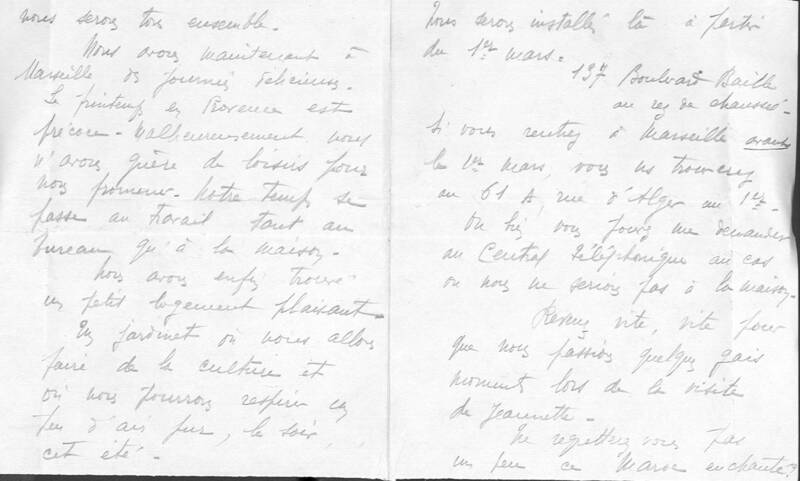 nous serons tous ensemble.
Nous avons maintenant à
Marseille des journées délicieuses.
Le printemps en Provence est
précoce - Malheureusement nous
n'avons guère de loisirs pour
nous promener. Notre temps se
passe au travail tant au
bureau qu'à la maison.
Nous avons enfin trouvé
un petit logement plaisant.
Un jardinet où nous allons
faire de la culture et
où nous pourrons respirer un
peu d'air pur, le soir,
cet été.
Nous serons installés là à partir
du 1er mars.
137 Boulevard Baille
au rez de chaussée.
Si vous rentrez à Marseille avant
le 1er mars, vous nous trouverez
au 61 A, rue d'Alger au 1er.
Ou bien vous pourrez me demander
au Central Téléphonique au cas
où nous ne serions pas à la maison.
Revenez vite, vite pour
que nous passions quelques gais
moments lors de la visite
de Jeannette.
Ne regrettez vous pas
un peu ce Maroc enchanté?